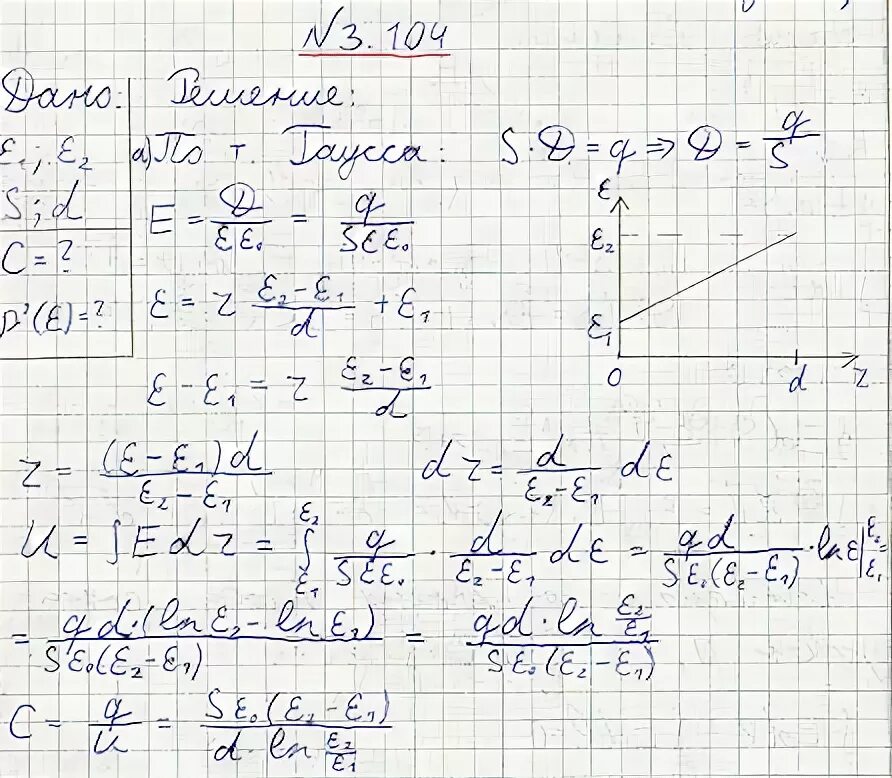 N 3.104
Дано: Решение:
ε₁; ε₂ а) По т. Гаусса: S·D = q ⇒ D = q/S
S; d E = D/(εε₀) = q/(Sεε₀)
C = ? ε = z (ε₂-ε₁)/d + ε₁
ρ'(ε) = ? ε - ε₁ = z (ε₂-ε₁)/d
ε
ε₂
ε₁
0 d z
z = (ε-ε₁)d/(ε₂-ε₁) dz = d/(ε₂-ε₁) dε
U = ∫E dz = ∫_{ε₁}^{ε₂} q/(Sεε₀) · d/(ε₂-ε₁) dε = qd/(Sε₀(ε₂-ε₁)) · ln ε|_{ε₁}^{ε₂} =
= qd·(ln ε₂ - ln ε₁)/(Sε₀(ε₂-ε₁)) = qd·ln(ε₂/ε₁)/(Sε₀(ε₂-ε₁))
C = q/U = Sε₀(ε₂-ε₁)/(d·ln(ε₂/ε₁))